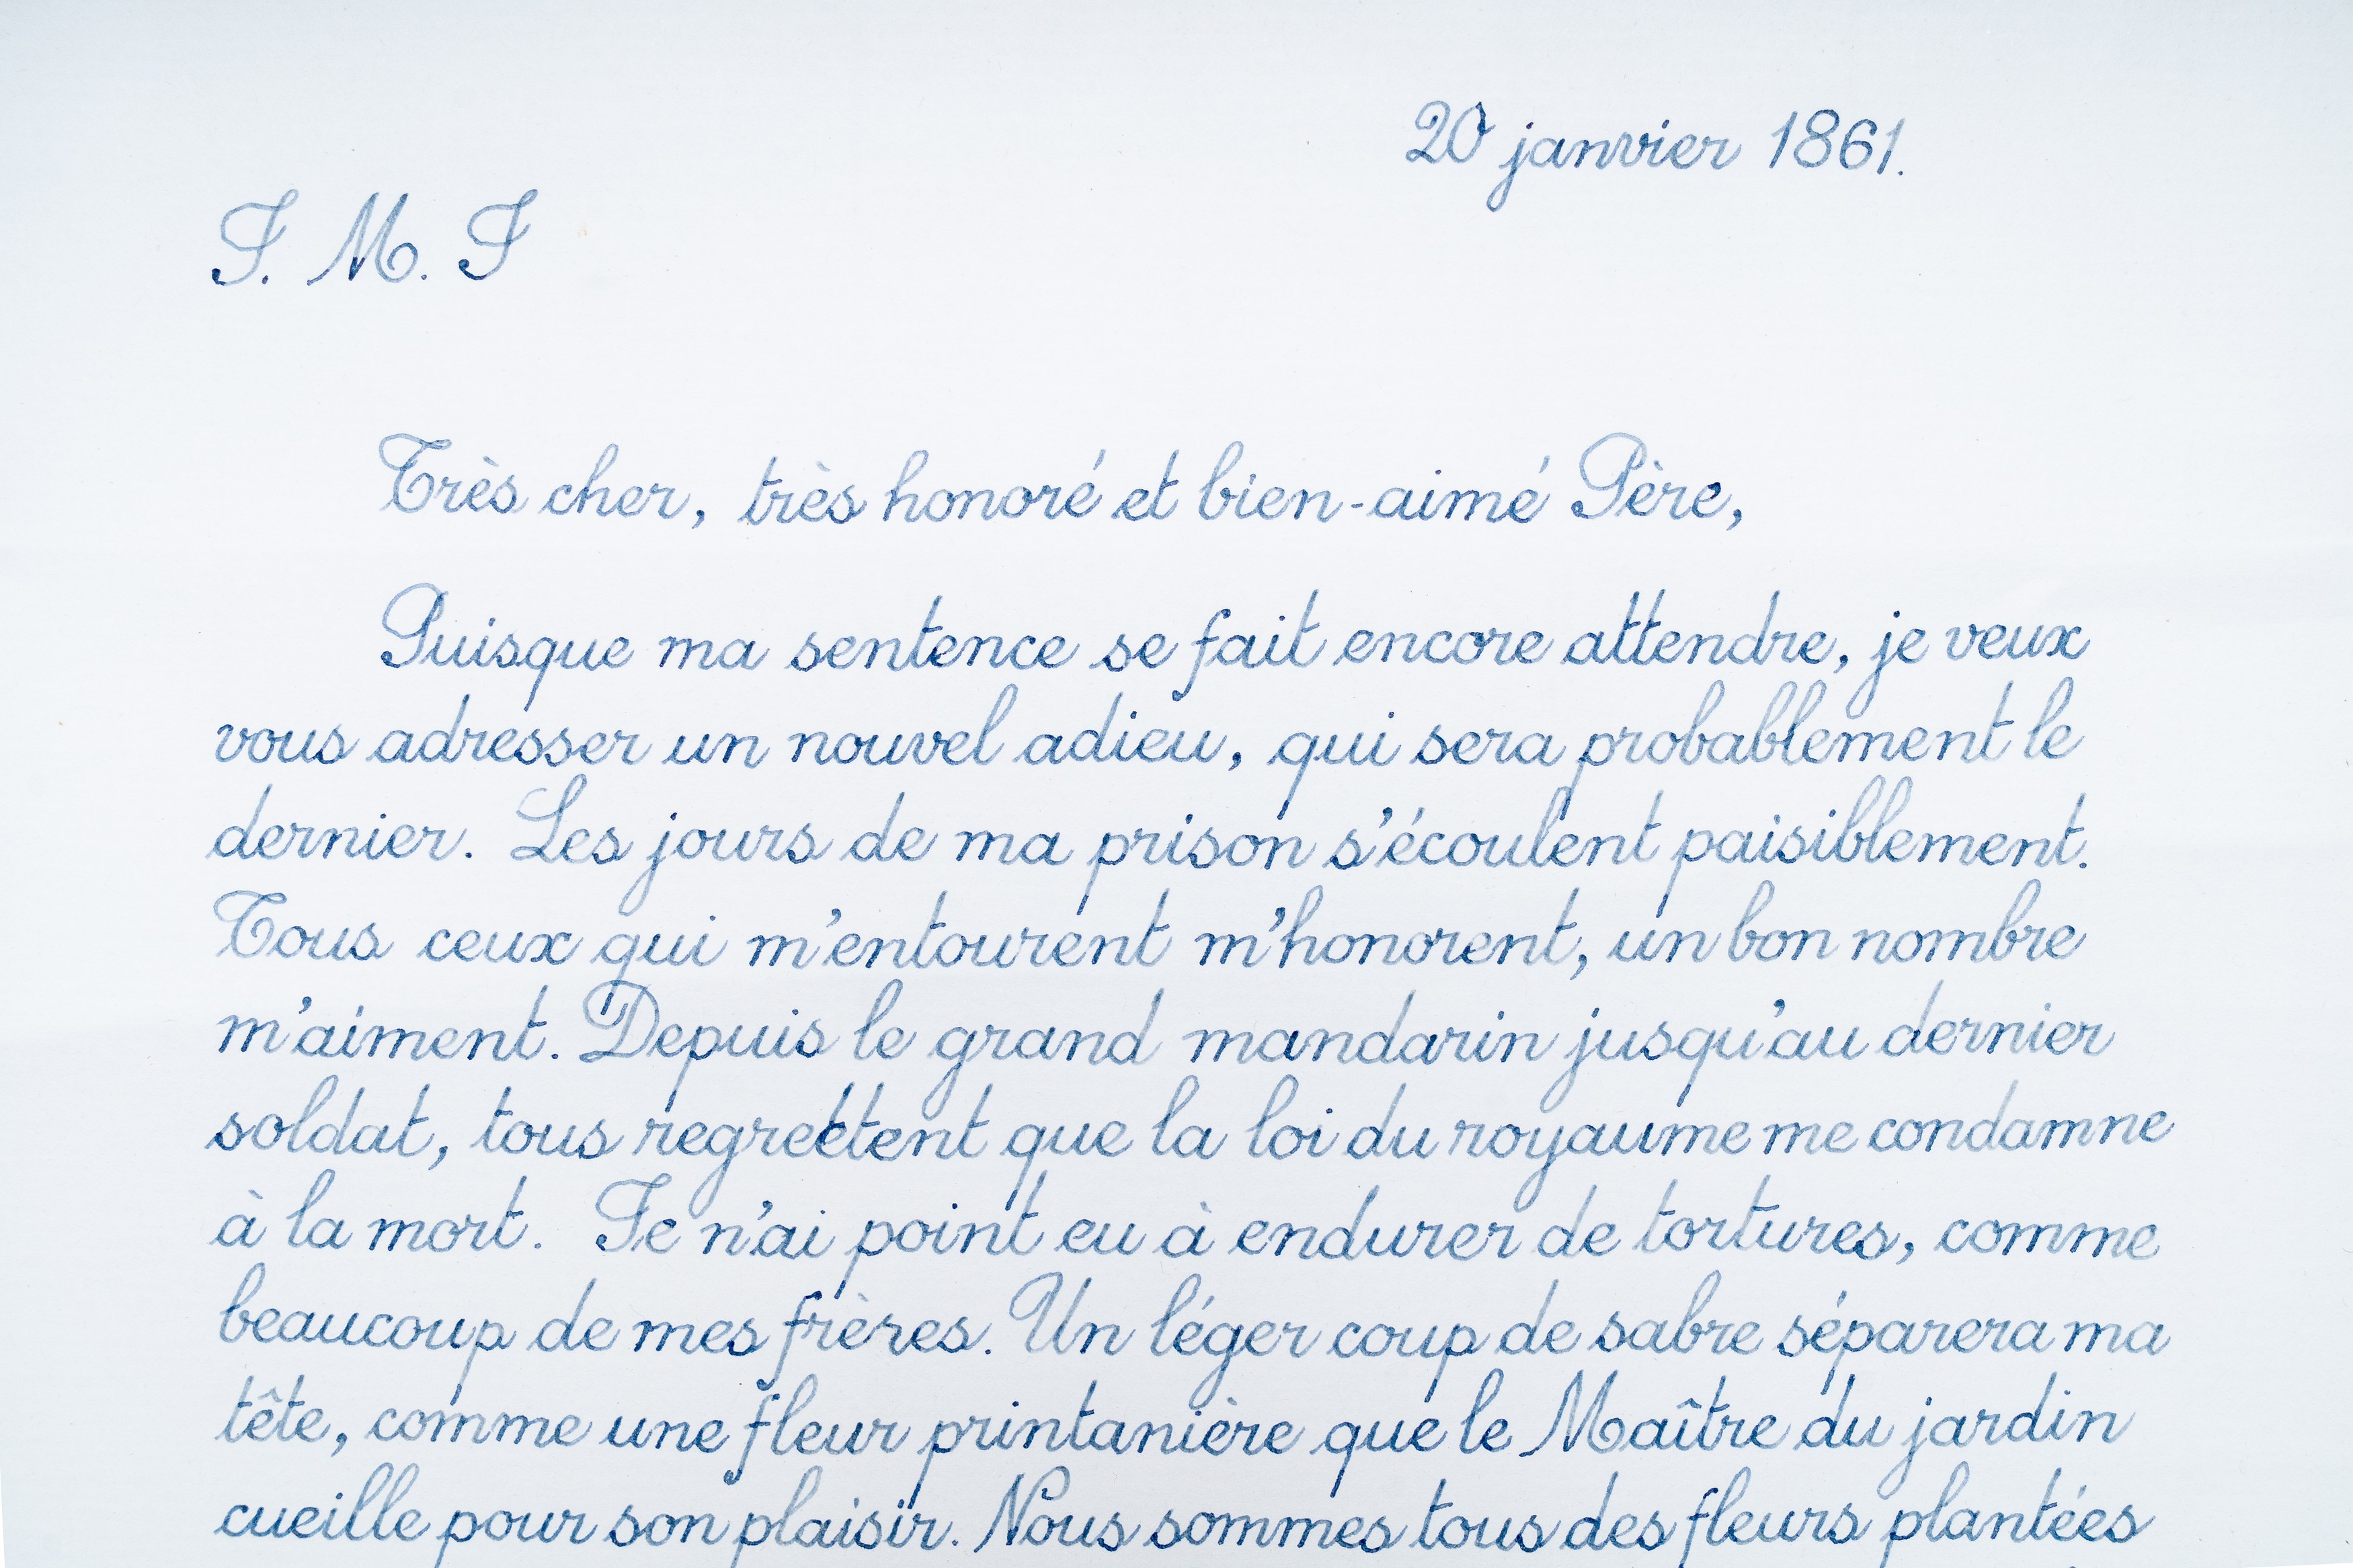 20 janvier 1861.
J. M. J
Très cher, très honoré et bien-aimé Père,
Puisque ma sentence se fait encore attendre, je veux
vous adresser un nouvel adieu, qui sera probablement le
dernier. Les jours de ma prison s'écoulent paisiblement.
Tous ceux qui m'entourent m'honorent, un bon nombre
m'aiment. Depuis le grand mandarin jusqu'au dernier
soldat, tous regrettent que la loi du royaume me condamne
à la mort. Je n'ai point eu à endurer de tortures, comme
beaucoup de mes frères. Un léger coup de sabre séparera ma
tête, comme une fleur printanière que le Maître du jardin
cueille pour son plaisir. Nous sommes tous des fleurs plantées